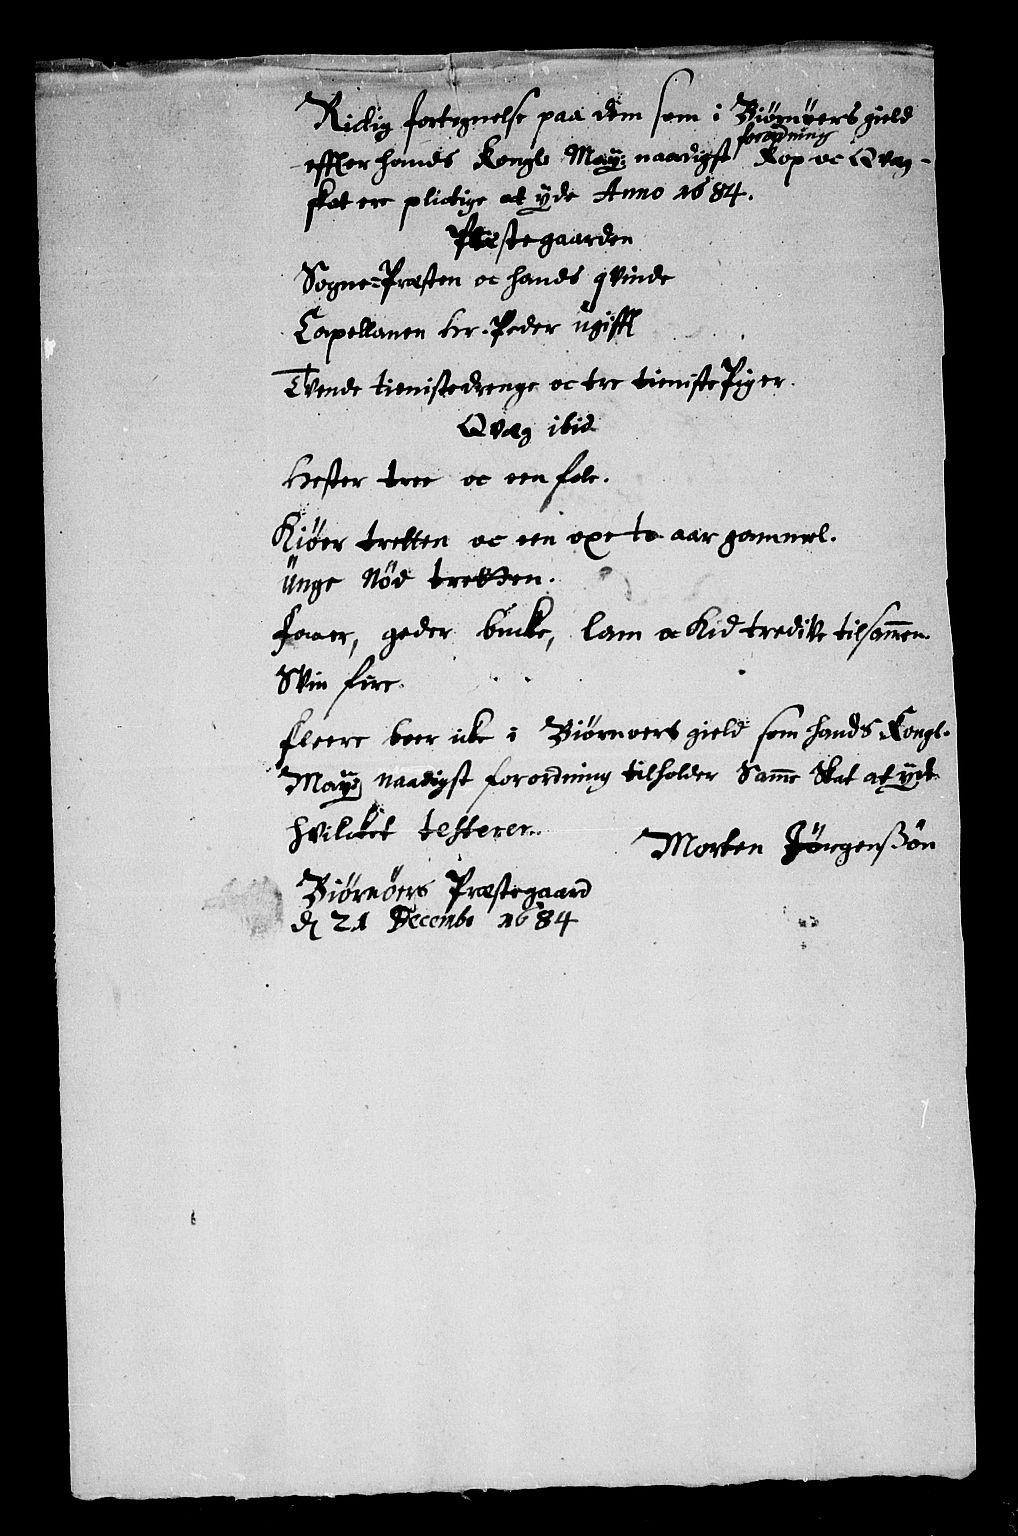 Rictig fortegnelse paa dem som i Biørnøers gield
effter hands Kongl: May: naadigst forordning Kop oc Qvæg-
skat ere plictige at yde Anno 1684.
Præstegaarden
Sogne-Præsten oc hands qvinde
Capellanen Hr. Peder ugifft
Tvende tienistedrenge oc tre tieniste Piger.
Qvæg ibid
Hester tree oc een fole.
Kiøer tretten oc een oxe to aar gammel.
Unge Nød tretten.
Faaer, geder bucke, lam oc Kid tredive tilsam̄en.
Svin fire.
Fleere boer icke i Biørnøers gield som hands Kongl.
May: naadigst forordning tilholder Sam̄e Skat at yde
hvilcket testerer.
Morten Jörgensßøn
Biørnøers Præstegaard
d 21 Decembr 1684